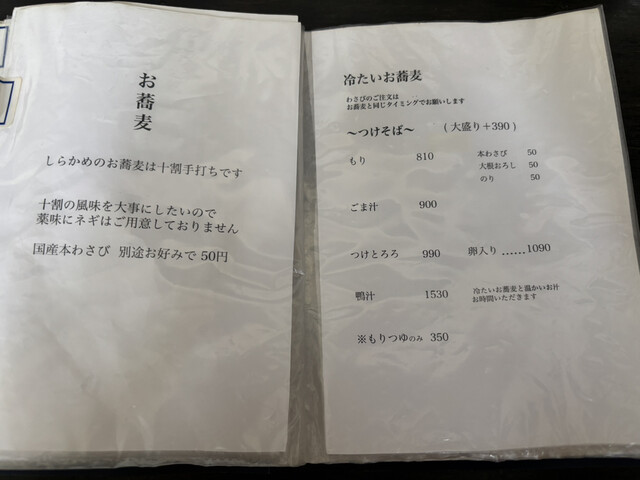 お蕎麦
しらかめのお蕎麦は十割手打ちです
十割の風味を大事にしたいので
薬味にネギはご用意しておりません
国産本わさび 別途お好みで 50円
冷たいお蕎麦
わさびのご注文は
お蕎麦と同じタイミングでお願いします
〜つけそば〜 (大盛り+390)
もり 810 本わさび 50
大根おろし 50
のり 50
ごま汁 900
つけとろろ 990 卵入り ……1090
鴨汁 1530 冷たいお蕎麦と温かいお汁
お時間いただきます
※もりつゆのみ 350